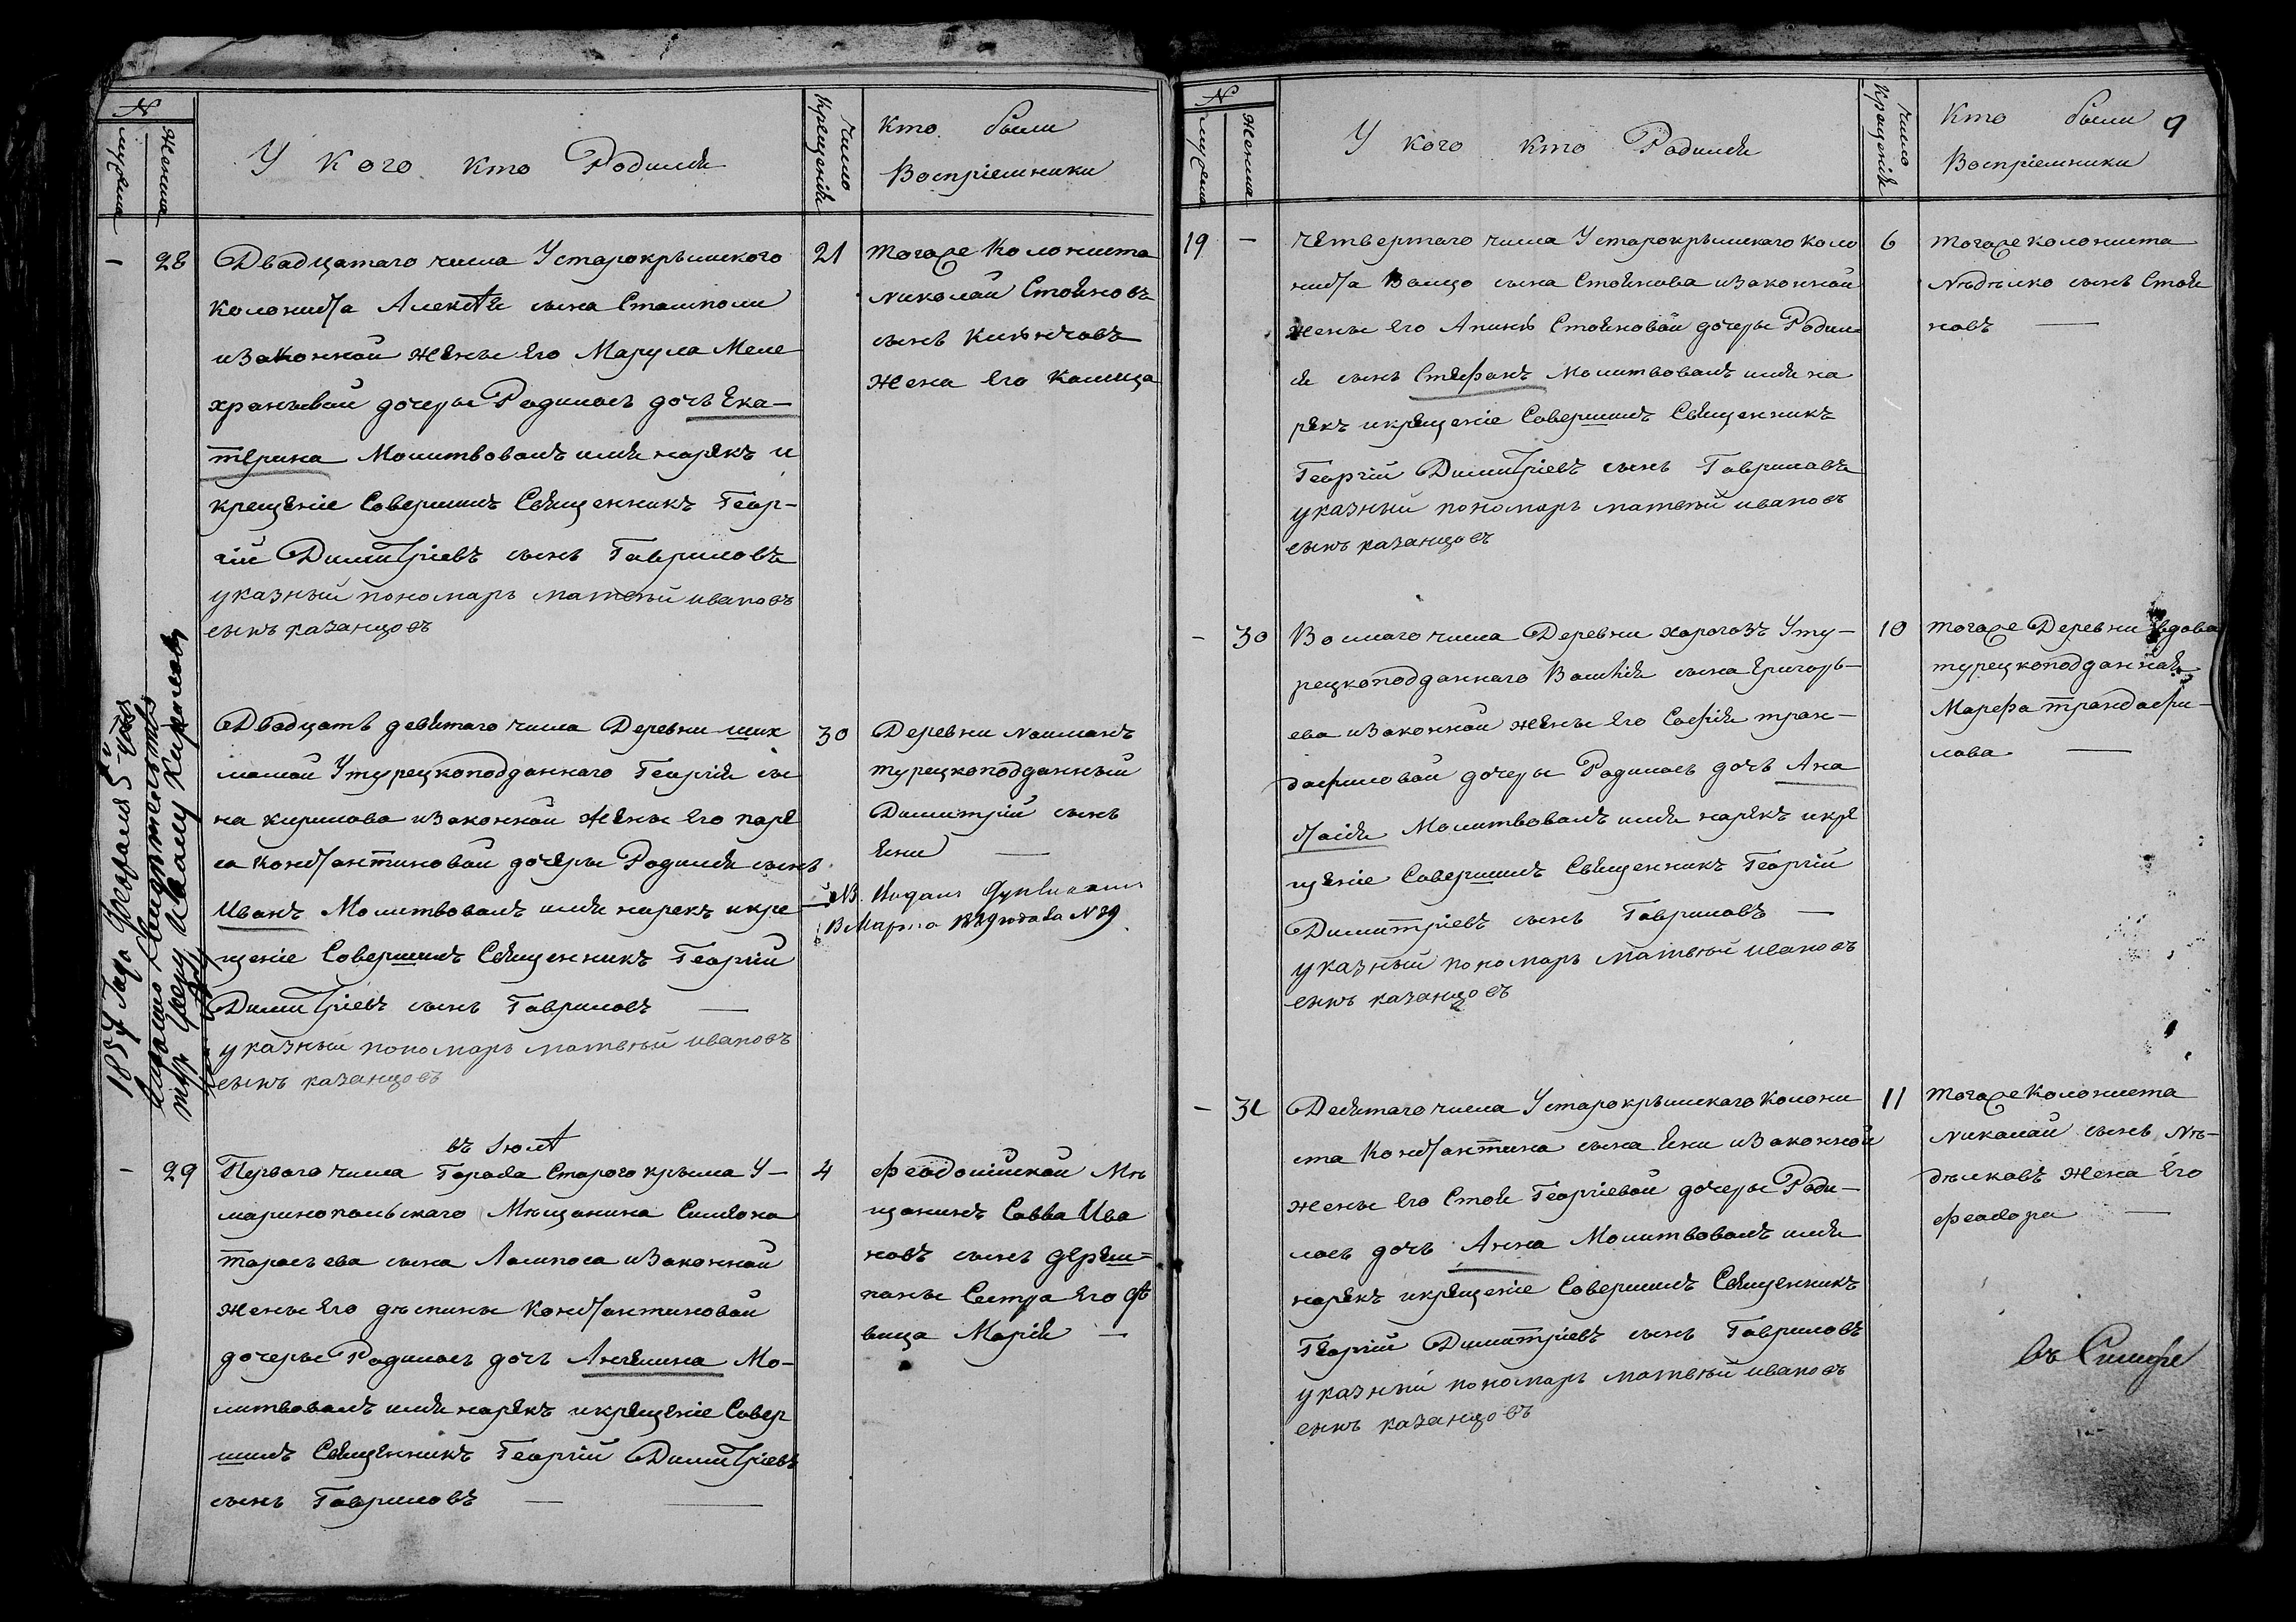 №
мужеска
женска
У кого кто Родился
Число Крещенія
Кто были
Воспріемники
— 28
Двадцатаго числа Устарокрымского
колониста Алексѣя сына Стамполи
изаконной жены его Марула Меле
храновой дочеры Родилась дочь Ека-
терина Молитвовалъ имя нарекъ и
крещеніе Совершилъ Священникъ Геор-
гій Димитріевъ сынъ Гавриловъ
указный пономарь матвѣй ивановъ
сынъ казанцовъ
21
тогоже Колониста
Николай Стояновъ
сынъ
жена его калица
Двадцать девятаго числа Деревни шах
мамай Утурецкоподданнаго Георгія сы
на кирилова изаконной жены его
са Константиновой дочеры Родился сынъ
Иванъ Молитвовалъ имя нарекъ икре
щеніе Совершилъ Священникъ Георгій
Димитріевъ сынъ Гавриловъ —
указный пономарь матвѣй ивановъ
сынъ казанцовъ
30
Деревни Найманъ
турецкоподданный
Димитрій сынъ
Яни —
NB. Выданъ
Марта 1829 года за №39.
1857 Года Февраля 5го
выдано Свидетельство
тур. Греку Ивану Кирилову
въ Іюлѣ
— 29
Перваго числа Города Старого крыма У-
маринопольскаго Мѣщанина Симеона
тарасьева сына Лампоса изаконной
жены его дѣспины Константиновой
дочеры Родилась дочь Ангелина Мо-
литвовалъ имя нарекъ икрещеніе Совер
шилъ Священникъ Георгій Димитріевъ
сынъ Гавриловъ —
4
Феодосійской Мѣ
щанинъ Савва Ива
новъ сынъ
Сестра его дѣ
вица Марія —
№
мужеска
женска
У кого кто Родился
Число Крещенія
Кто были 9
Воспріемники
19 —
Четвертаго числа Устарокрымскаго коло
ниста Вамцо сына Стоянова изаконной
жены его Апинѣ Стояновой дочеры Родил
ся сынъ Стефанъ Молитвовалъ имя на
рекъ икрещеніе Совершилъ Священникъ
Георгій Димитріевъ сынъ Гавриловъ
указный пономарь матвѣй ивановъ
сынъ казанцовъ
6
тогоже колониста
Нѣдѣлко сынъ Стоя
новъ —
— 30
Восмаго числа Деревни харагозъ Уту-
рецкоподданнаго Василія сына Григорь-
ева изаконной жены его Софія тран-
дафиловой дочеры Родилась дочь Ана
стасія Молитвовалъ имя нарекъ икре
щеніе Совершилъ Священникъ Георгій
Димитріевъ сынъ Гавриловъ —
указный пономарь матвѣй ивановъ
сынъ казанцовъ
10
тогоже Деревни вдова
турецкоподданная
Марфа трандафи-
лова —
— 31
Десятаго числа Устарокрымскаго Колони
ста Константина сына Яни изаконной
жены его Стоя Георгіевой дочеры Роди-
лась дочь Анна Молитвовалъ имя
нарекъ икрещеніе Совершилъ Священникъ
Георгій Димитріевъ сынъ Гавриловъ
указный пономарь матвѣй ивановъ
сынъ казанцовъ
11
тогоже Колониста
Николай сынъ Нѣ-
дѣлковъ жена его
феодора —
въ Симфе